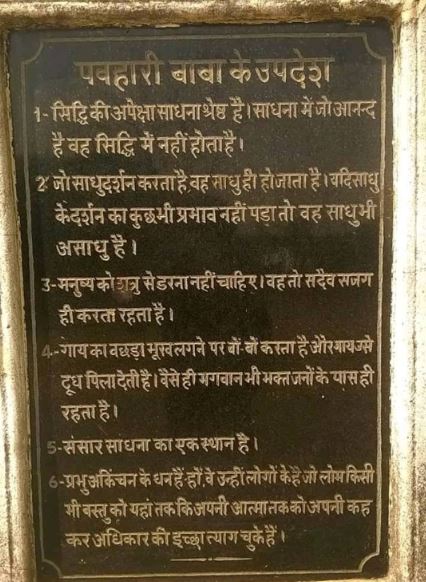 पवहारी बाबा के उपदेश
1- सिद्धि की अपेक्षा साधना श्रेष्ठ है। साधना में जो आनन्द
है वह सिद्धि में नहीं होता है।
2- जो साधु दर्शन करता है वह साधु ही हो जाता है। यदि साधु
के दर्शन का कुछ भी प्रभाव नहीं पड़ा तो वह साधु भी
असाधु है।
3- मनुष्य को शत्रु से डरना नहीं चाहिए। वह तो सदैव सजग
ही करता रहता है।
4- गाय का बछड़ा भूख लगने पर बाँ-बाँ करता है और गाय उसे
दूध पिला देती है। वैसे ही भगवान भी भक्त जनों के पास ही
रहता है।
5- संसार साधना का एक स्थान है।
6- प्रभु अकिंचन के धन हैं हाँ, वे उन्हीं लोगों के हैं जो लोभ किसी
भी वस्तु को यहां तक कि अपनी आत्मा तक को अपनी कह
कर अधिकार की इच्छा त्याग चुके हैं।